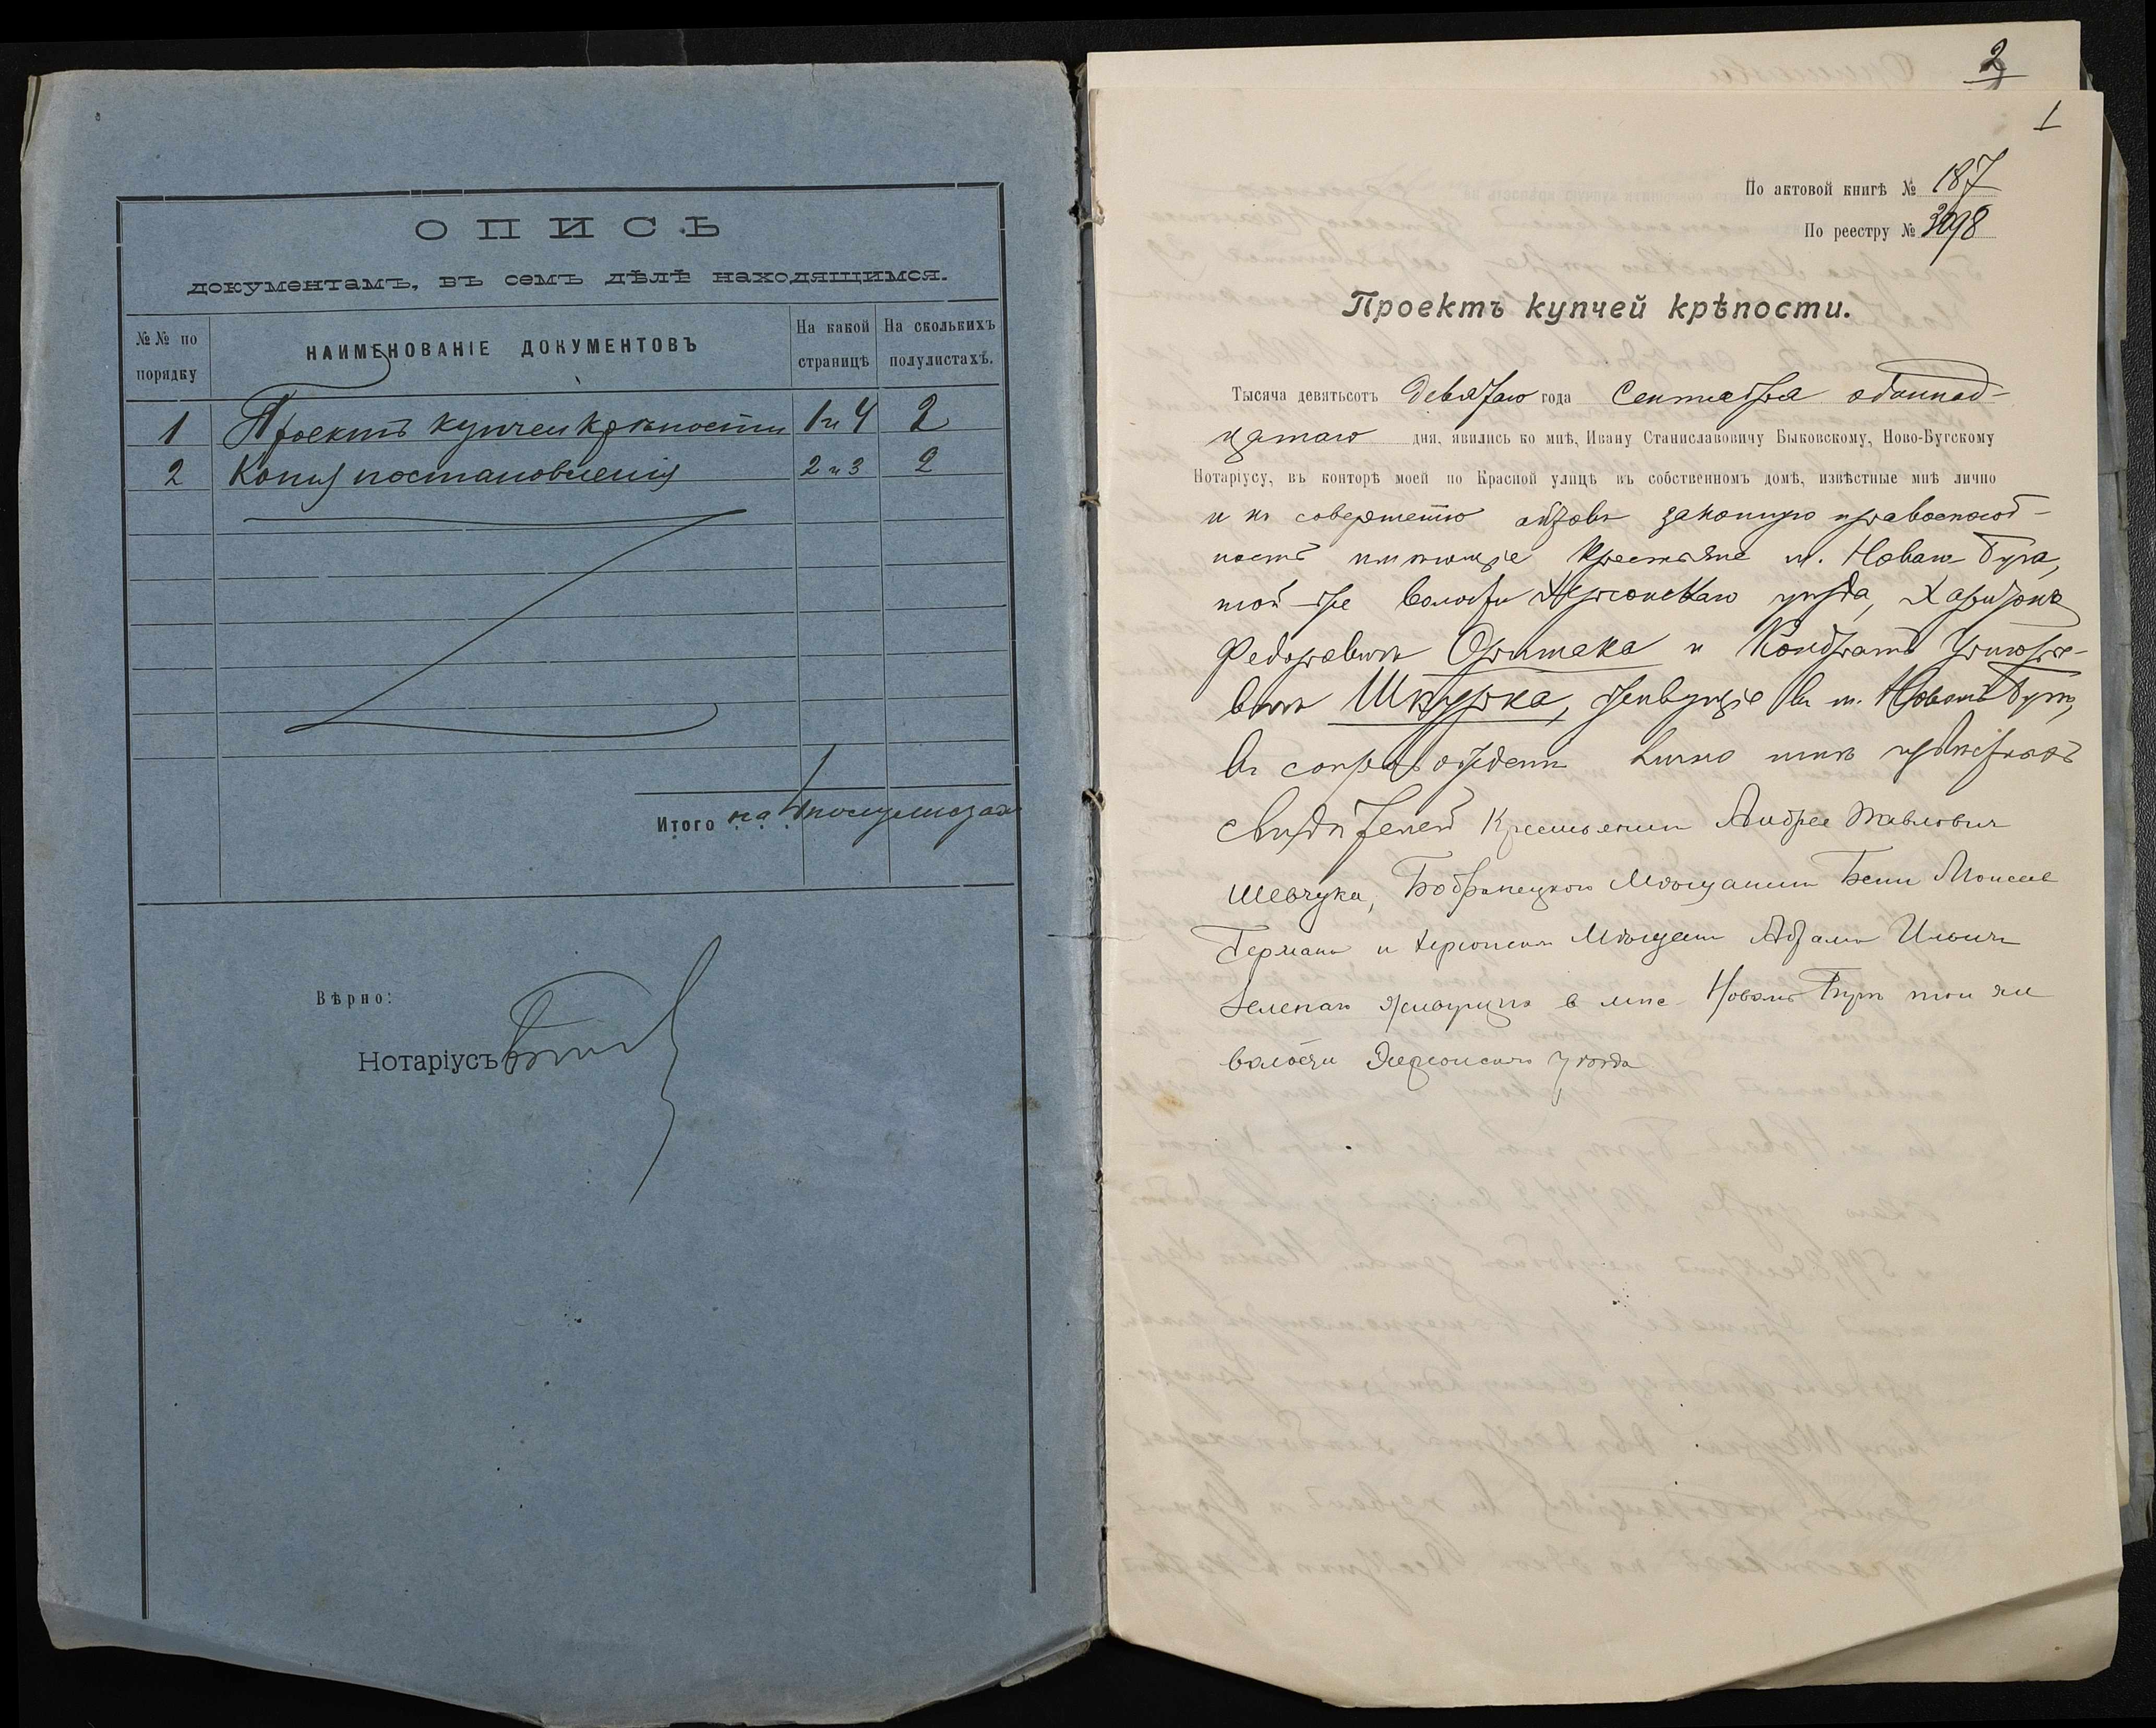 ОПИСЬ
документамъ, въ семъ дѣлѣ находящимся.
№№ по порядку
НАИМЕНОВАНІЕ ДОКУМЕНТОВЪ
На какой страницѣ
На сколькихъ полулистахъ.
1 Проектъ купчей крѣпости 1 и 4 2
2 Копія постановленія 2 и 3 2
Итого на 4 полулистах
Вѣрно:
Нотаріусъ
2
1
По актовой книгѣ № 187
По реестру № 3098
Проектъ купчей крѣпости.
Тысяча девятьсот девятаго года Сентября одиннад-
цатаго дня, явились ко мнѣ, Ивану Станиславовичу Быковскому, Ново-Бугскому
Нотаріусу, въ конторѣ моей по Красной улицѣ въ собственномъ домѣ, извѣстные мнѣ лично
и къ совершенію актовъ законную правоспособ-
ность имѣющіе крестьяне м. Новаго Буга,
той-же волости Херсонскаго уѣзда, Харитонъ
Федоровичъ и Кондратъ Григорье-
вичъ Шкурка, живущіе въ м. Новомъ Бугѣ,
въ сопровожденіи лично мнѣ извѣстныхъ
свидѣтелей Крестьянин Андрея Павловича
Шевчука, Бобринецкаго Мѣщанина Бени Моисее
Германа и Херсонскаго Мѣщан Абрама Ильича
живущихъ в мѣс Новомъ Бугѣ той же
волости Херсонскаго уѣзда